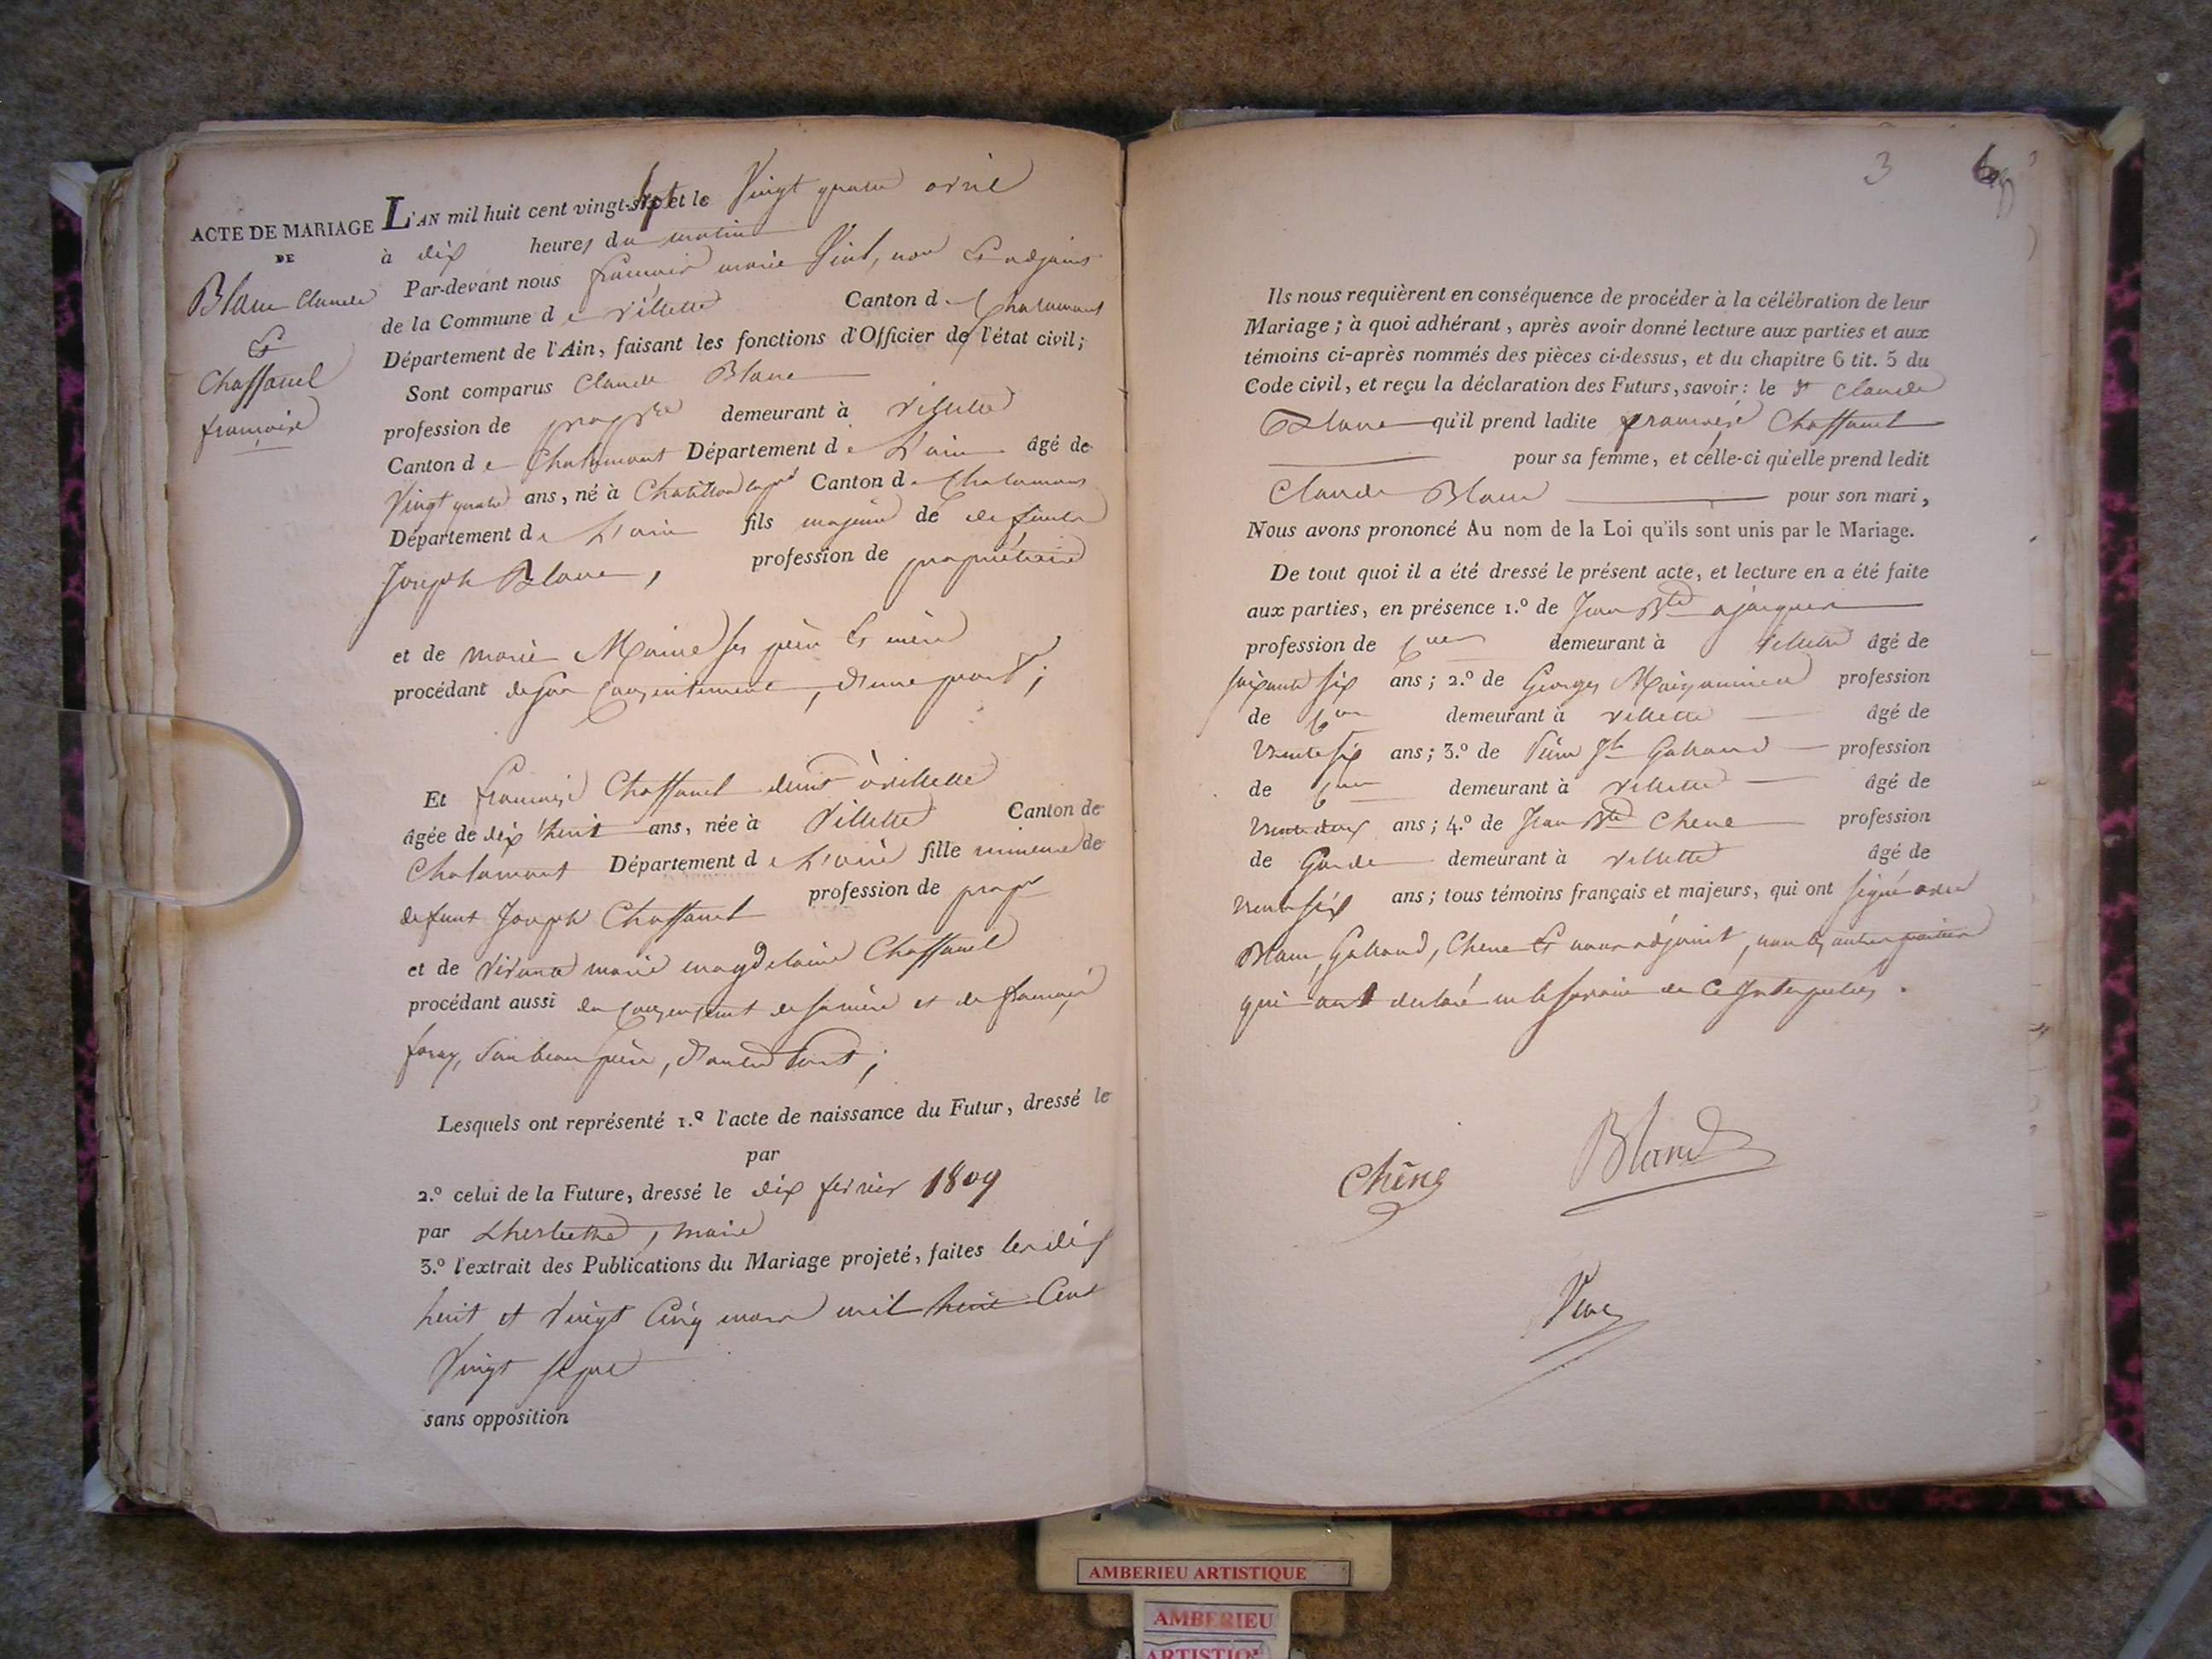 ACTE DE MARIAGE
DE
Blanc Claude
Et
Chaffanel
francoise
L'AN mil huit cent vingt-sept et le Vingt quatre avril
à dix heures du matin
Par-devant nous francois marie Vial, Et adjoint
de la Commune de Villette Canton de Chalamont
Département de l'Ain, faisant les fonctions d'Officier de l'état civil;
Sont comparus Claude Blanc
profession de propre demeurant à Villette
Canton de Chalamont Département de L'ain âgé de
Vingt quatre ans, né à Canton de Chalamont
Département de L'ain fils majeur de defunts
Joseph Blanc, profession de propriétaire
et de marie ses père Et mère
procédant de son Consentement, d'une part;
Et francoise Chaffanel demt à Villette
âgée de dix huit ans, née à Villette Canton de
Chalamont Département de L'ain fille mineure de
defunt Joseph Chaffanel profession de propr
et de vivante marie magdelaine Chaffanel
procédant aussi du Consentement de sa mère et de francois
foray, Son beau père, d'autre part;
Lesquels ont représenté 1.º l'acte de naissance du Futur, dressé le
par
2.º celui de la Future, dressé le dix fevrier 1809
par maire
3.º l'extrait des Publications du Mariage projeté, faites les dix
huit et vingt Cinq mars mil huit Cent
Vingt Sept
sans opposition
3 6
Ils nous requièrent en conséquence de procéder à la célébration de leur
Mariage; à quoi adhérant, après avoir donné lecture aux parties et aux
témoins ci-après nommés des pièces ci-dessus, et du chapitre 6 tit. 5 du
Code civil, et reçu la déclaration des Futurs, savoir: le Sr Claude
Blanc qu'il prend ladite francoise Chaffanel
pour sa femme, et celle-ci qu'elle prend ledit
Claude Blanc pour son mari,
Nous avons prononcé Au nom de la Loi qu'ils sont unis par le Mariage.
De tout quoi il a été dressé le présent acte, et lecture en a été faite
aux parties, en présence 1.º de Jean Bte
profession de demeurant à Villette âgé de
soixante six ans; 2.º de Georges profession
de demeurant à Villette âgé de
trente six ans; 3.º de Pierre Jh Galland profession
de demeurant à Villette âgé de
trente deux ans; 4.º de Jean Bte Chene profession
de Garde demeurant à Villette âgé de
trente six ans; tous témoins français et majeurs, qui ont signé avec
Blanc, Galland, Chene Et nous adjoint, non les autres parties
qui ont declaré ne le savoir de Ce Interpellés.
Chêne
Blanc
AMBERIEU ARTISTIQUE
AMBERIEU
ARTISTIQUE